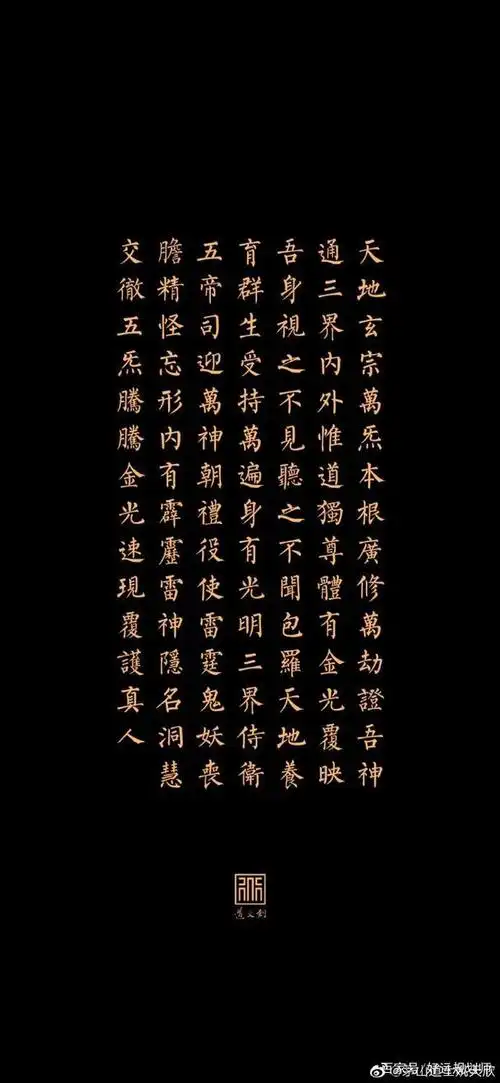 天地玄宗萬炁本根廣修萬劫證吾神
通三界内外惟道獨尊體有金光覆映
吾身視之不見聽之不聞包羅天地養
育群生受持萬遍身有光明三界侍衛
五帝司迎萬神朝禮役使雷霆鬼妖喪
膽精怪忘形内有霹靂雷神隱名洞慧
交徹五炁騰騰金光速現覆護真人
道文創
百家号/好运规划师